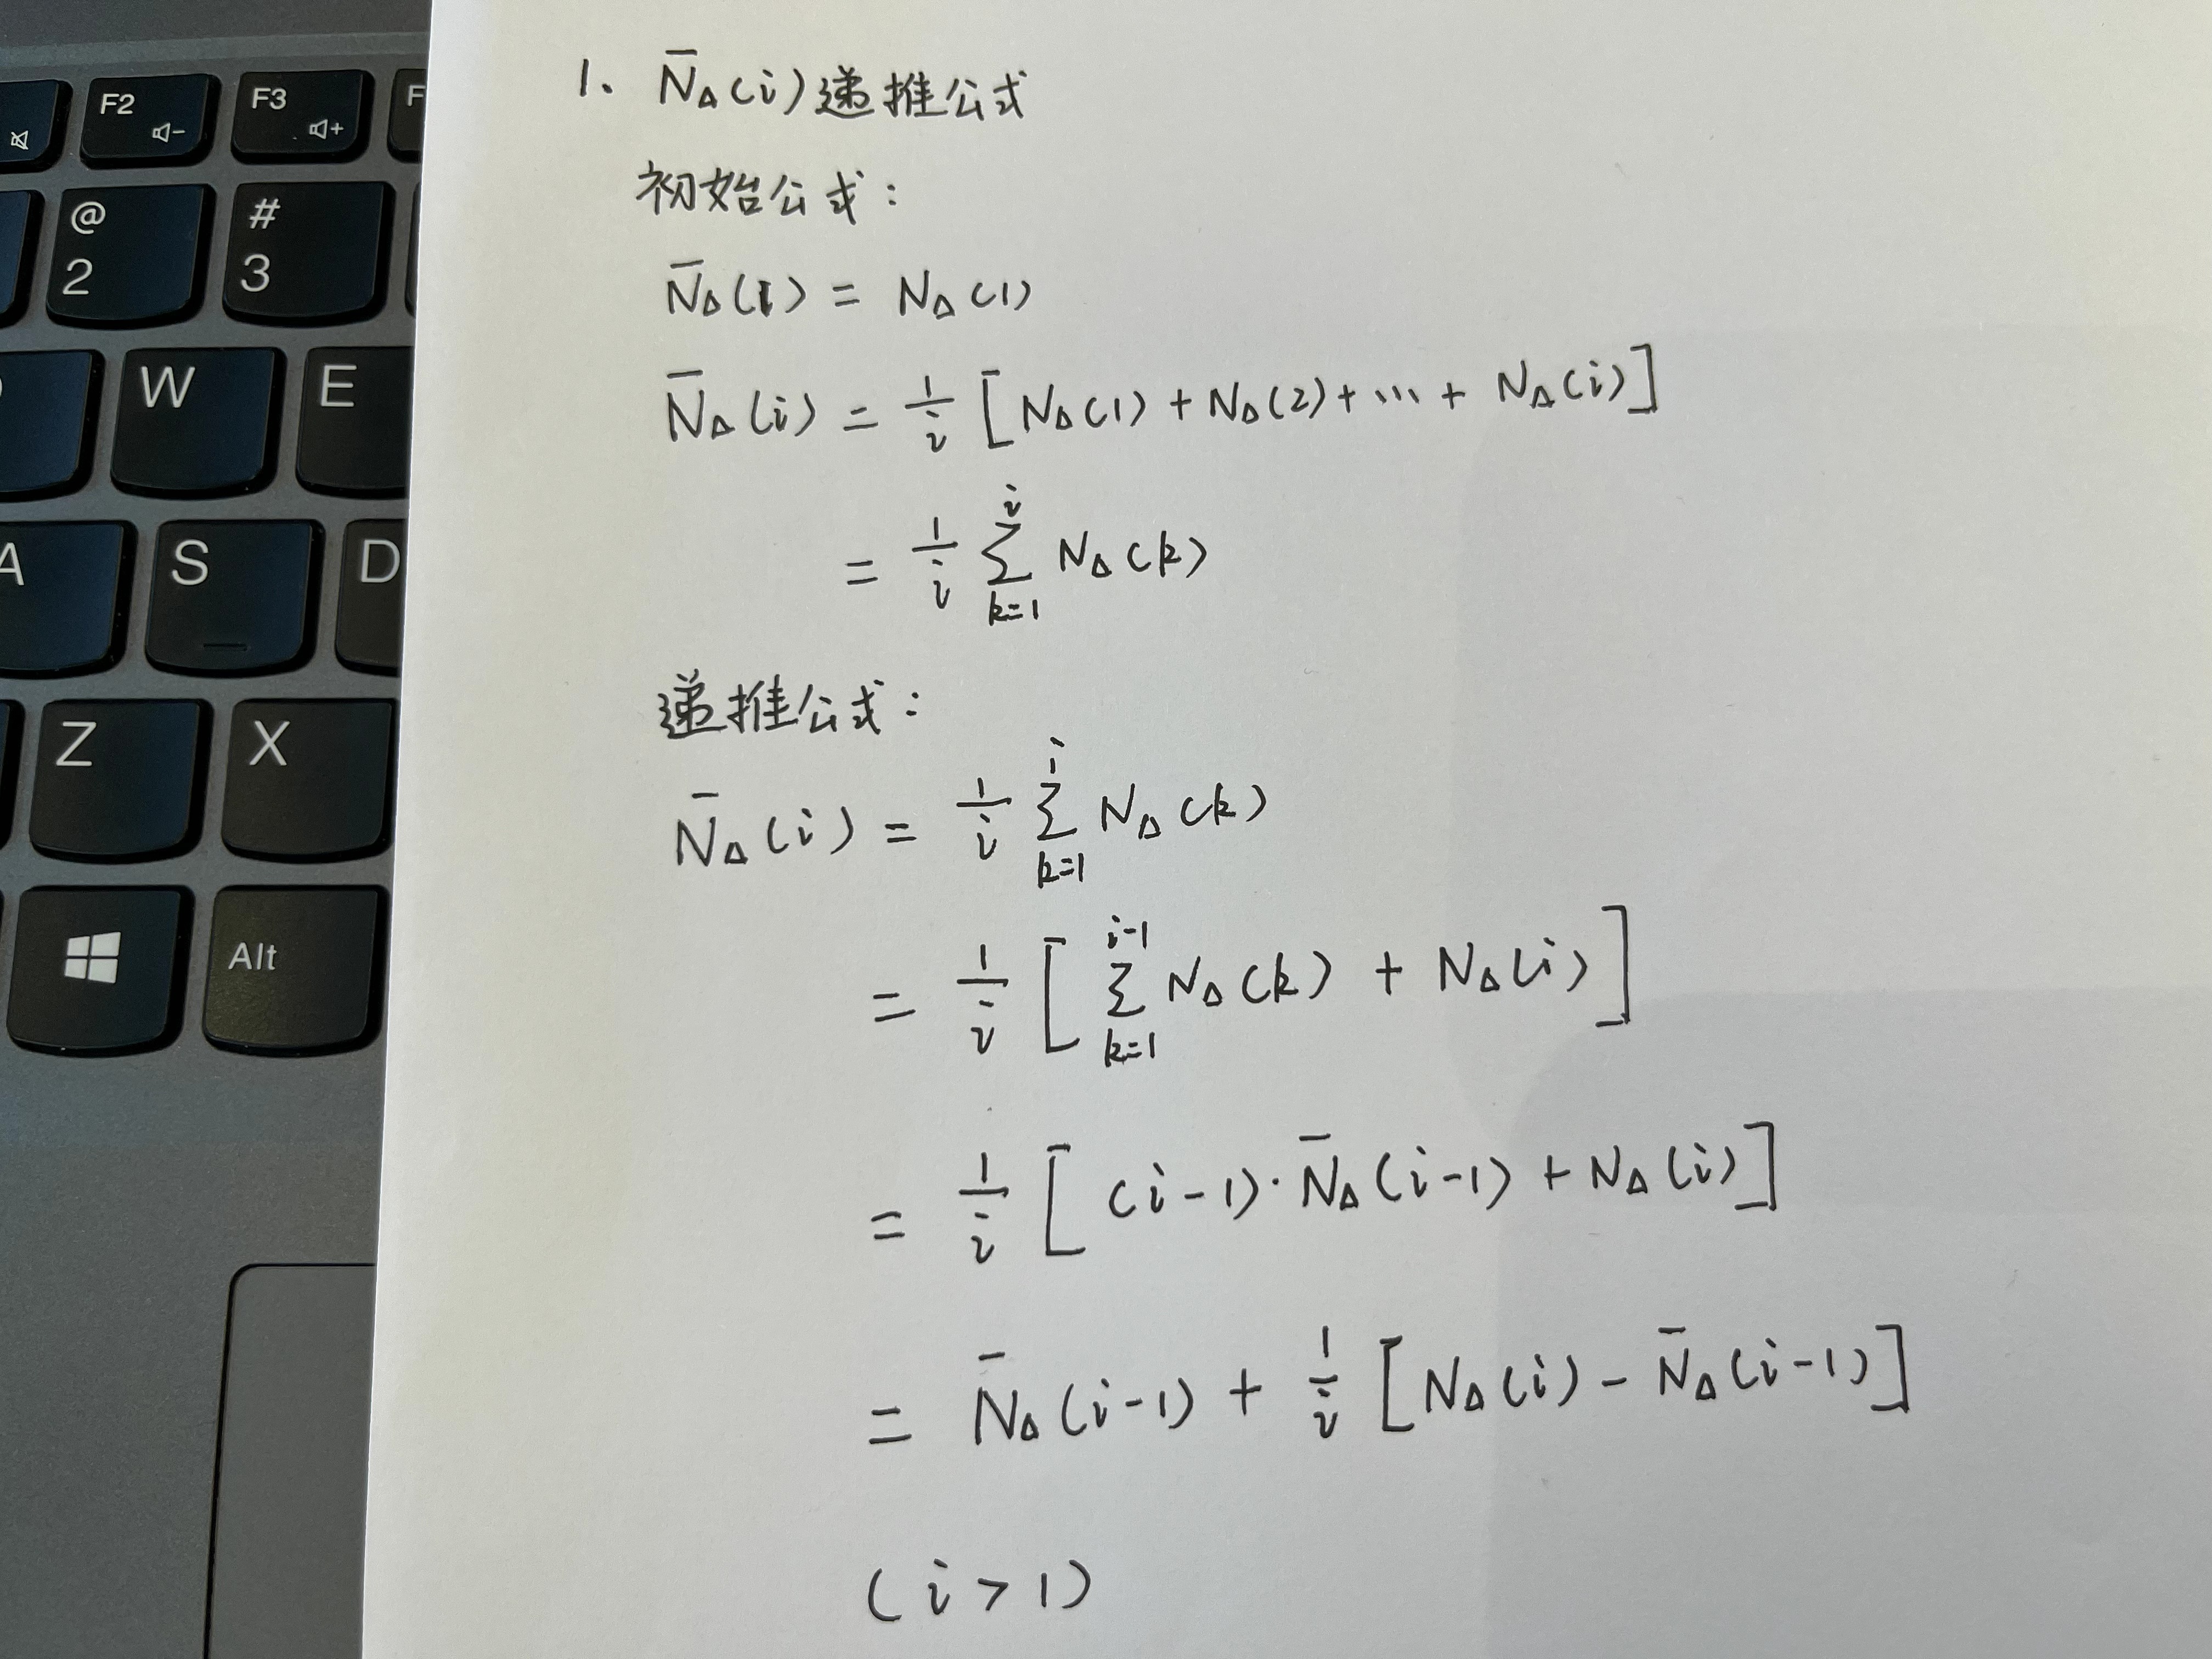 F2
F3
F
@
2
#
3
W
E
A
S
D
Z
X
Alt
1、N̄Δ(i)递推公式
初始公式：
N̄Δ(1) = NΔ(1)
N̄Δ(i) = 1/i [NΔ(1) + NΔ(2) + ... + NΔ(i)]
= 1/i ∑_{k=1}^{i} NΔ(k)
递推公式：
N̄Δ(i) = 1/i ∑_{k=1}^{i} NΔ(k)
= 1/i [∑_{k=1}^{i-1} NΔ(k) + NΔ(i)]
= 1/i [(i-1)·N̄Δ(i-1) + NΔ(i)]
= N̄Δ(i-1) + 1/i [NΔ(i) - N̄Δ(i-1)]
(i > 1)